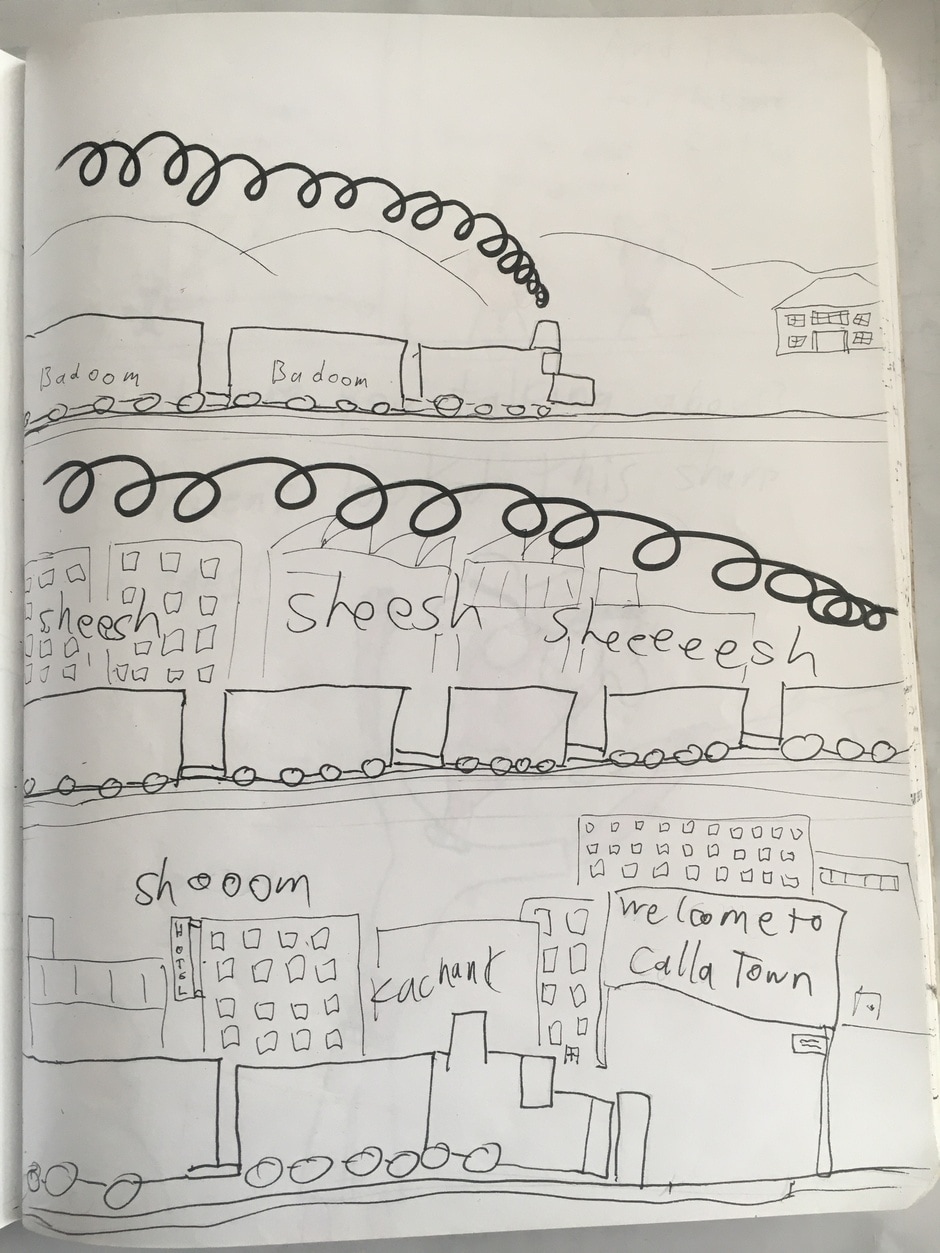 Badoom
Badoom
sheesh
sheesh
sheeeeesh
shooom
HOTEL
kachank
Welcome to
Calla Town